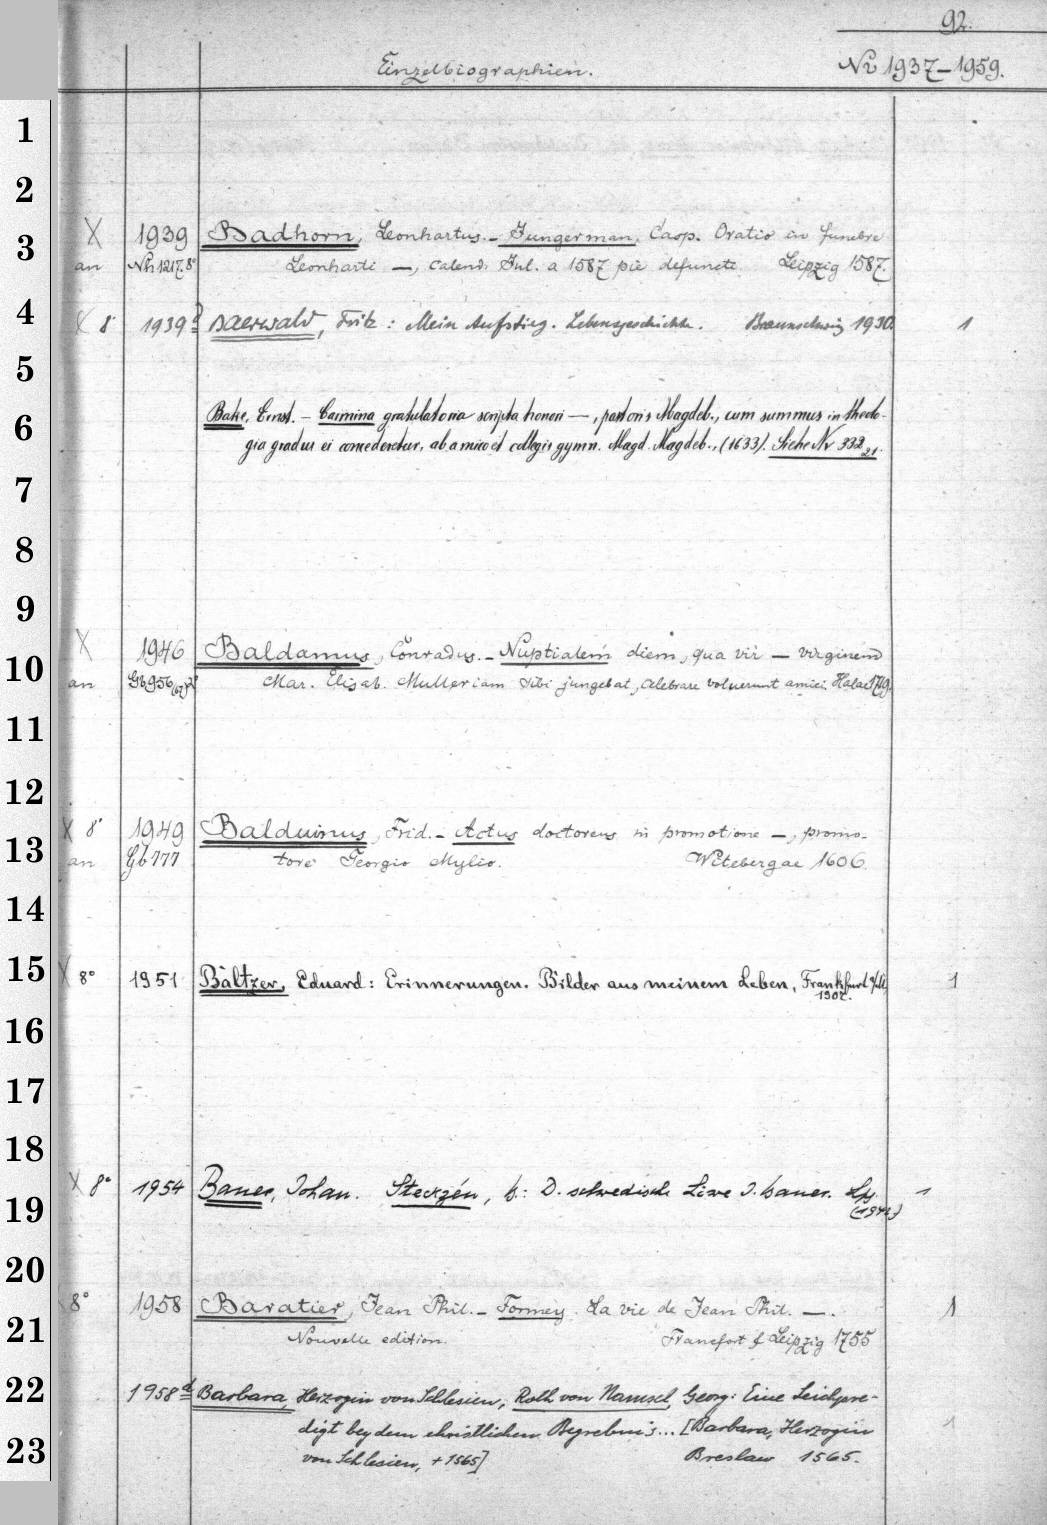 92.
Einzelbiographien. Nr 1937–1959.
1
2
3
X 1939 Badhorn, Leonhartus. – Jungerman, Casp. Oratio in funebre
an Nh 1217.8° Leonharti —, calend. Jul. a 1587 pie defuncti. Leipzig 1587.
4
X 8° 1939 Baerwald, Fritz: Mein Aufstieg. Lebensgeschichte. Braunschweig 1930. 1
5
6
Bake, Ernst. – Carmina gratulatoria scripta honori —, pastoris Magdeb., cum summus in theolo-
gia gradus ei concederetur, ab amico et collegis gymn. Magd. Magdeb., (1633). Siehe Nr 332 21.
7
8
9
10
X 1946 Baldamus, Conradus. – Nuptialem diem, qua vir — virginem
an Gb 956 Mar. Elisab. Mulleriam sibi jungebat, celebrare voluerunt amici. Halae 1719.
11
12
13
X 8° 1949 Balduinus, Frid. – Actus doctoreus in promotione —, promo-
an Gb 777 tore Georgio Mylio. Witebergae 1606.
14
15
X 8° 1951 Baltzer, Eduard: Erinnerungen. Bilder aus meinem Leben, Frankfurt a/M. 1
1907.
16
17
18
19
X 8° 1954 Baner, Johan. Steckzén, B.: D. schwedische Löwe J. Baner. Lpz. 1
(1942)
20
21
8° 1958 Baratier, Jean Phil. – Formey. La vie de Jean Phil. —. 1
Nouvelle edition. Francfort & Leipzig 1755
22
1958 d Barbara, Herzogin von Schlesien, Roth von Namsel, Georg: Eine Leichpre-
digt bey dem christlichen Begrebnis... [Barbara, Herzogin 1
23
von Schlesien, + 1565] Breslaw 1565.